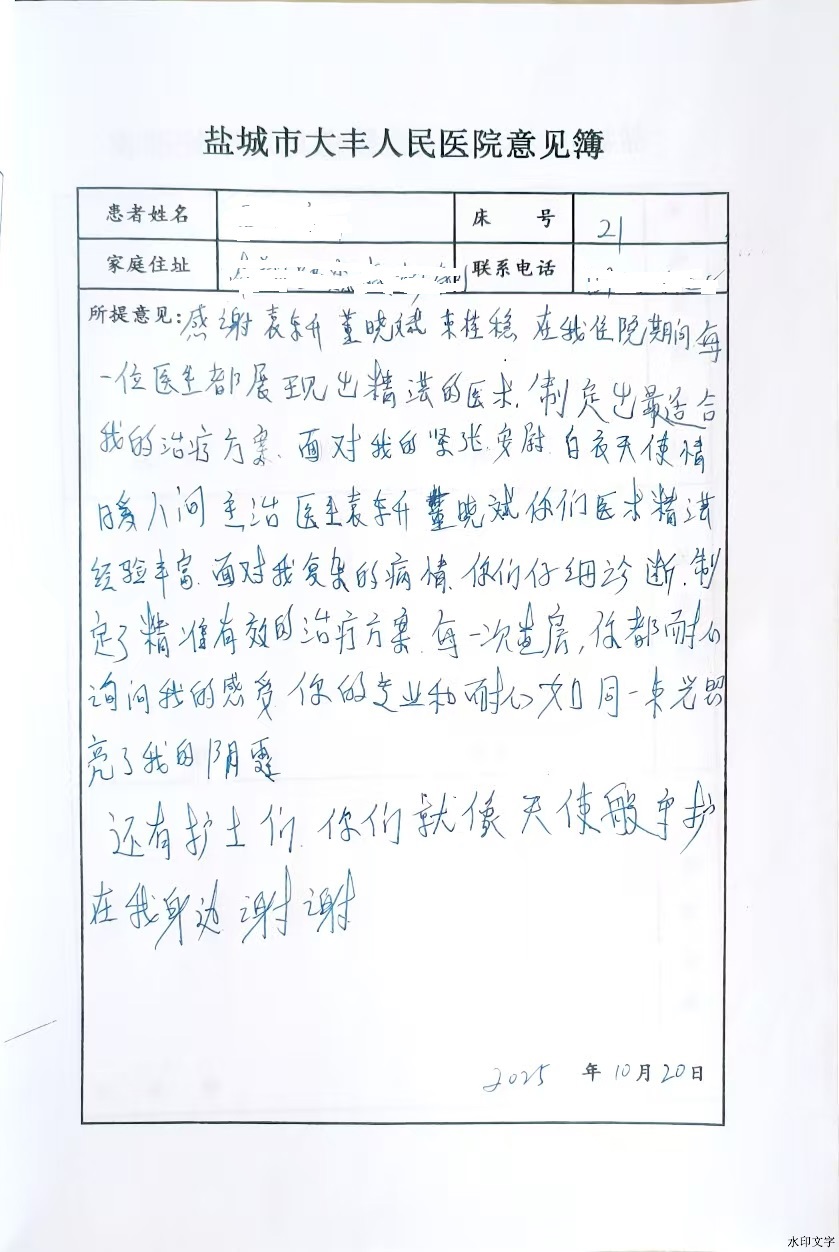 盐城市大丰人民医院意见簿
患者姓名 床 号 21
家庭住址 联系电话
所提意见:感谢袁东升 董晓斌 束桂稳 在我住院期间每
一位医生都展现出精湛的医术.制定出最适合
我的治疗方案、面对我的紧张.安慰.白衣天使情
暖人间 主治医生袁东升 董晓斌你们医术精湛
经验丰富.面对我复杂的病情.你们仔细诊断.制
定了精准有效的治疗方案.每一次查房,你都耐心
询问我的感受 你的专业和耐心如同一束光照
亮了我的阴霾
还有护士们.你们就像天使般守护
在我身边 谢谢
2025 年 10 月 20 日
水印文字